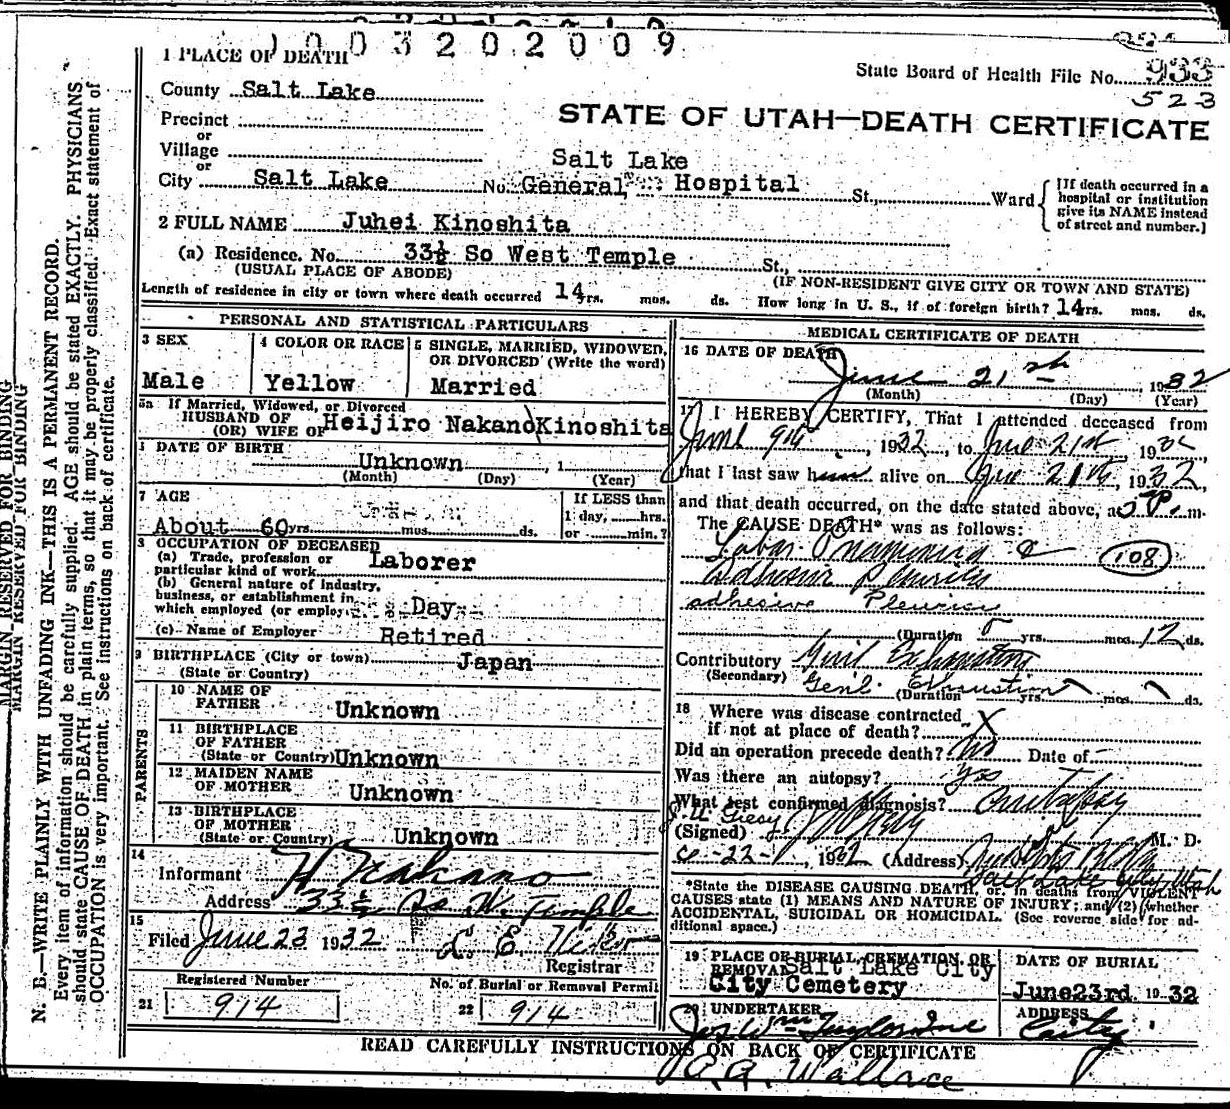 1003202009
1 PLACE OF DEATH
State Board of Health File No. 933
523
County Salt Lake
STATE OF UTAH—DEATH CERTIFICATE
Precinct
or
Village
or
Salt Lake
City Salt Lake No. General Hospital St., Ward
[If death occurred in a hospital or institution give its NAME instead of street and number.]
2 FULL NAME Juhei Kinoshita
(a) Residence. No. 33½ So West Temple St.,
(USUAL PLACE OF ABODE) (IF NON-RESIDENT GIVE CITY OR TOWN AND STATE)
Length of residence in city or town where death occurred 14 yrs. mos. ds. How long in U. S., if of foreign birth? 14 yrs. mos. ds.
PERSONAL AND STATISTICAL PARTICULARS
3 SEX
Male
4 COLOR OR RACE
Yellow
5 SINGLE, MARRIED, WIDOWED, OR DIVORCED (Write the word)
Married
5a If Married, Widowed, or Divorced
HUSBAND OF
(OR) WIFE OF Heijiro Nakano Kinoshita
DATE OF BIRTH
Unknown , 1
(Month) (Day) (Year)
7 AGE
About 60 yrs. mos. ds.
If LESS than
1 day, hrs.
or min.?
8 OCCUPATION OF DECEASED
(a) Trade, profession or
particular kind of work Laborer
(b) General nature of Industry,
business, or establishment in
which employed (or employer) Day
(c) Name of Employer Retired
9 BIRTHPLACE (City or town) Japan
(State or Country)
PARENTS
10 NAME OF
FATHER Unknown
11 BIRTHPLACE
OF FATHER
(State or Country) Unknown
12 MAIDEN NAME
OF MOTHER Unknown
13 BIRTHPLACE
OF MOTHER
(State or Country) Unknown
14
Informant H Nakano
Address 33½ So W. Temple
15
Filed June 23 1932 L. E.
Registrar
Registered Number
21 914
No. of Burial or Removal Permit
22 914
MEDICAL CERTIFICATE OF DEATH
16 DATE OF DEATH
June 21st, 1932
(Month) (Day) (Year)
17 I HEREBY CERTIFY, That I attended deceased from
June 9th, 1932, to June 21st 1932,
that I last saw him alive on June 21st, 1932,
and that death occurred, on the date stated above, at 5 P. m.
The CAUSE DEATH* was as follows:
Lobar Pneumonia & 108
Adhesive Pleurisy
adhesive Pleurisy
(Duration yrs. mos. 12 ds.
Contributory Genl Exhaustion
(Secondary) Genl. Exhaustion
(Duration yrs. mos. ds.
18 Where was disease contracted
if not at place of death? X
Did an operation precede death? No Date of
Was there an autopsy? Yes
What test confirmed diagnosis? Autopsy
(Signed) M. D.
6-22-, 1932 (Address)
Salt Lake City Utah
*State the DISEASE CAUSING DEATH, or, in deaths from VIOLENT
CAUSES state (1) MEANS AND NATURE OF INJURY; and (2) whether
ACCIDENTAL, SUICIDAL OR HOMICIDAL. (See reverse side for additional space.)
19 PLACE OF BURIAL, CREMATION, OR
REMOVAL Salt Lake City
City Cemetery
DATE OF BURIAL
June 23rd 1932
20 UNDERTAKER
Jos Wm Taylor Inc
ADDRESS
City
READ CAREFULLY INSTRUCTIONS ON BACK OF CERTIFICATE
A. A. Wallace
MARGIN RESERVED FOR BINDING
MARGIN RESERVED FOR BINDING
N. B.—WRITE PLAINLY WITH UNFADING INK—THIS IS A PERMANENT RECORD.
Every item of information should be carefully supplied. AGE should be stated EXACTLY. PHYSICIANS
should state CAUSE OF DEATH in plain terms, so that it may be properly classified. Exact statement of
OCCUPATION is very important. See instructions on back of certificate.